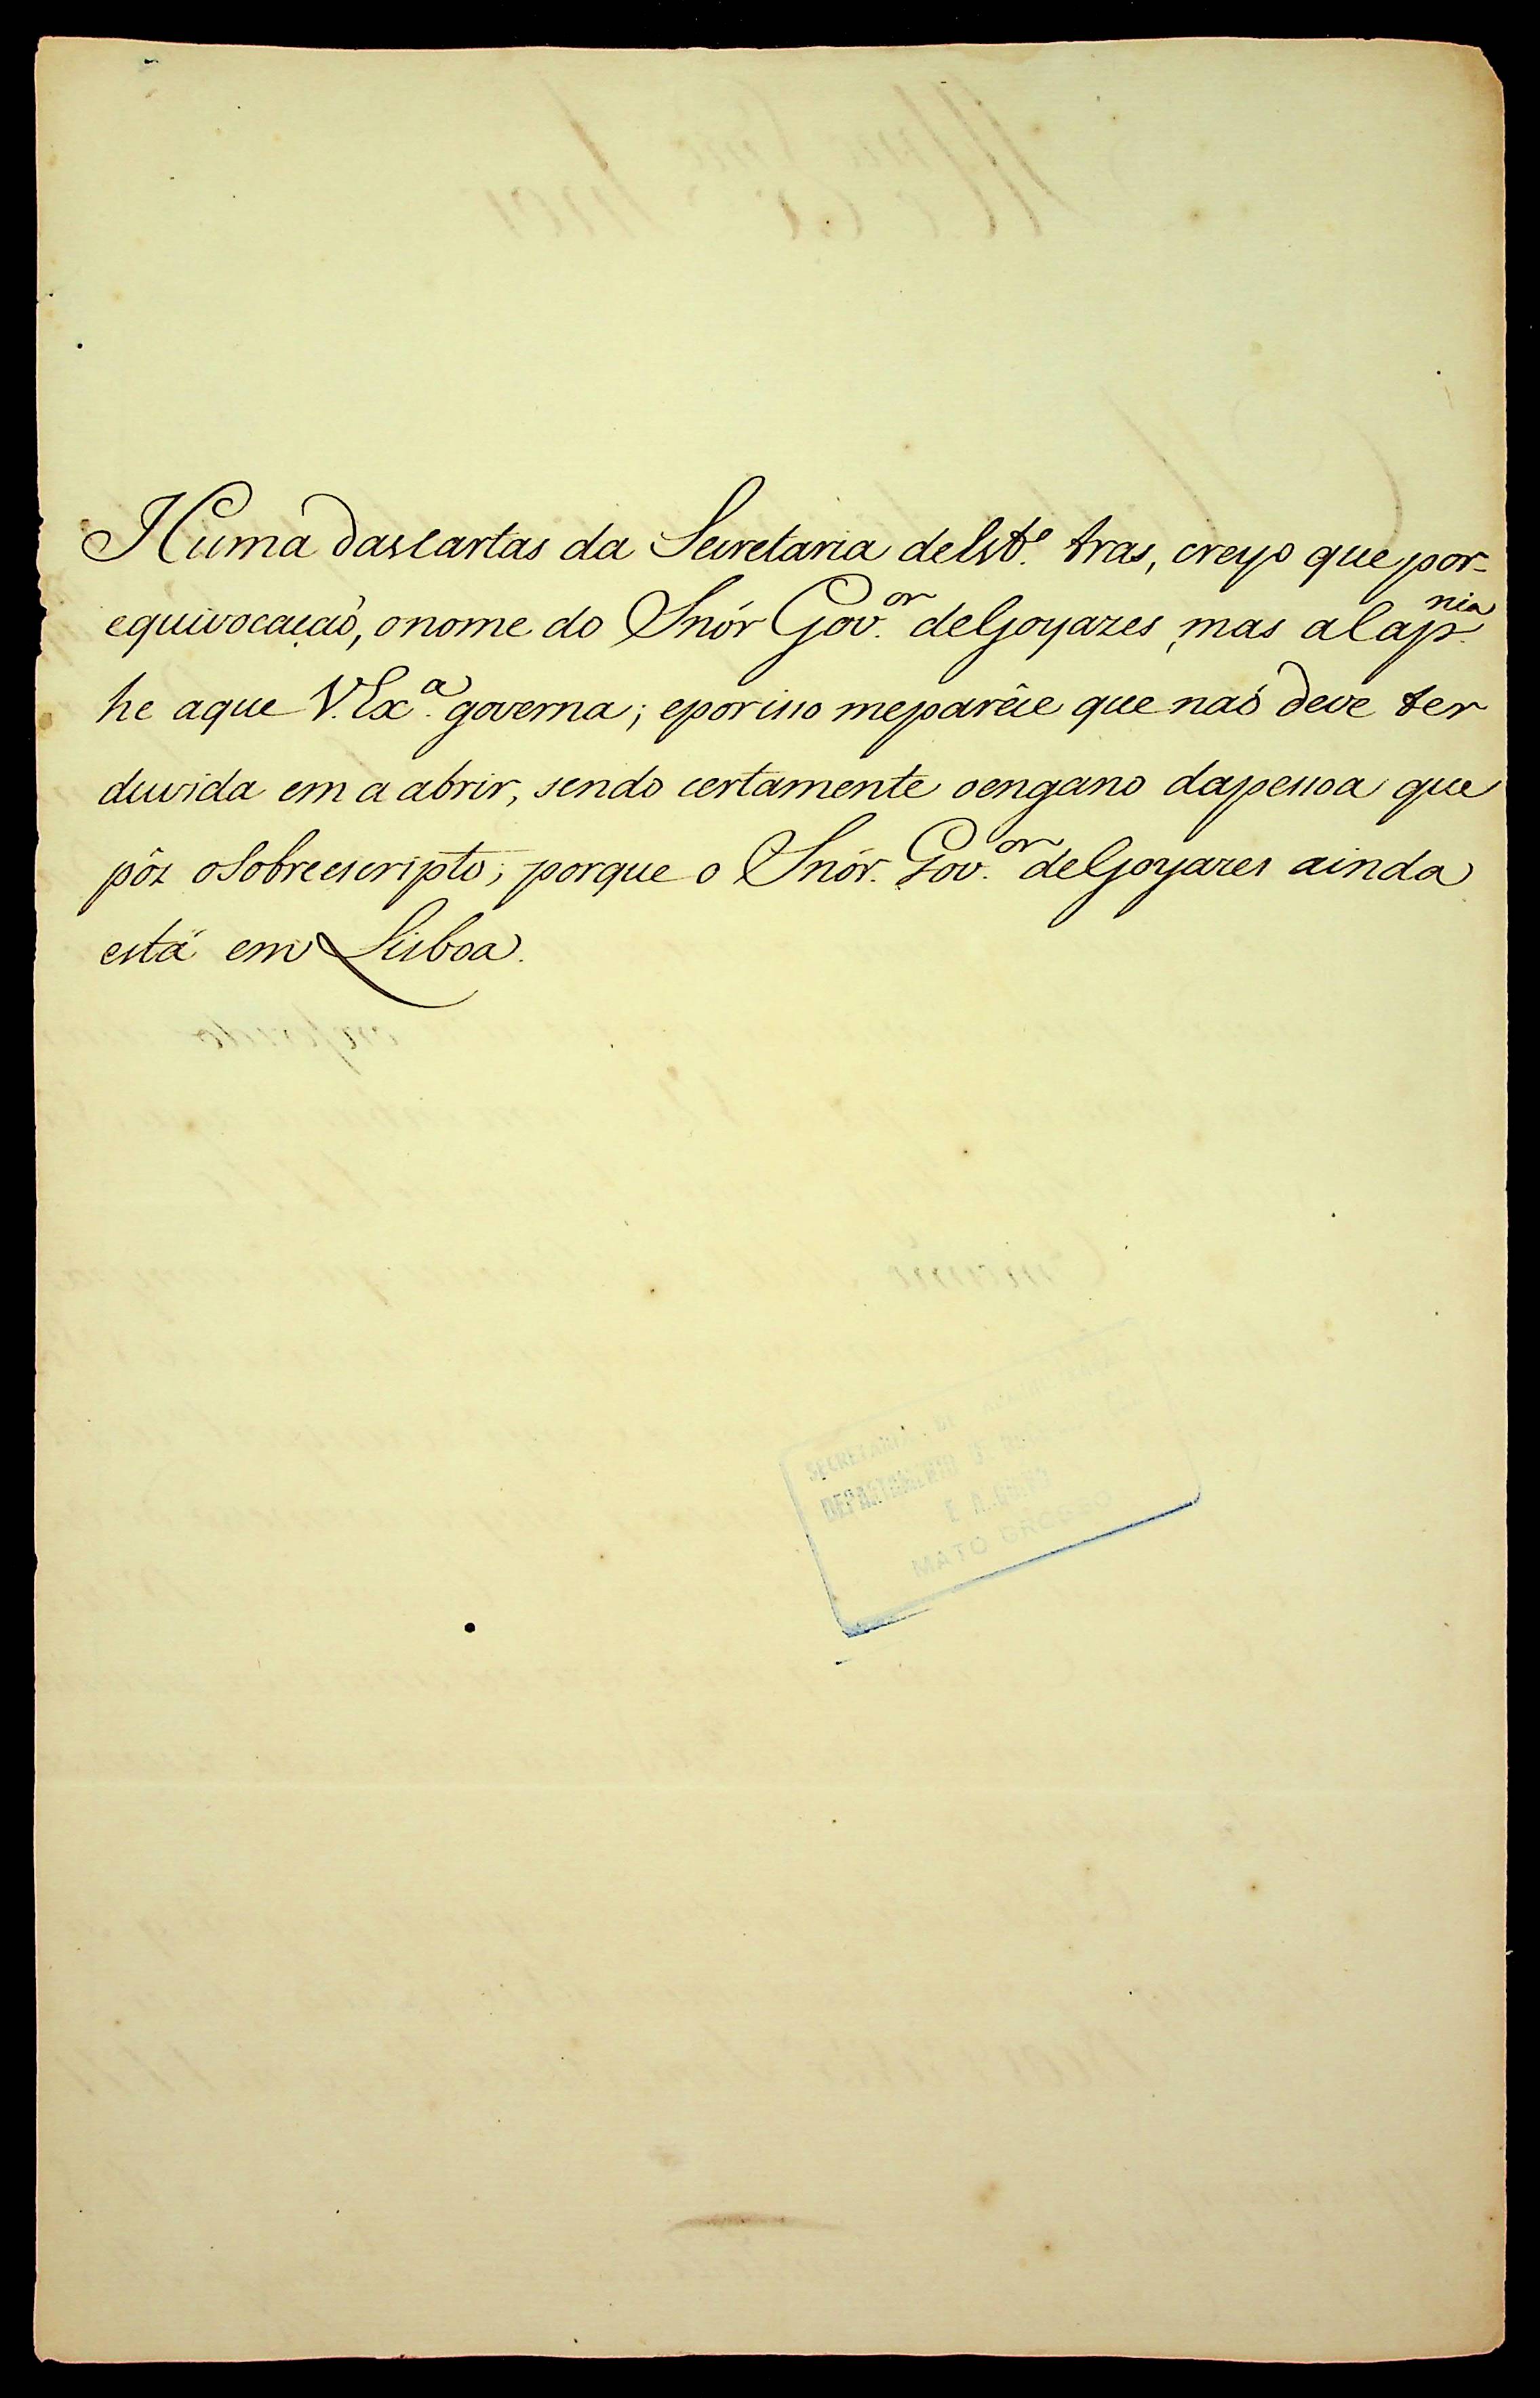 Huma das cartas da Secretaria de Est.º tras, creyo que por-
equivocação, o nome do Snór Gov.or de Goyazes, mas a Cap.nia
he aque V. Ex.a governa; epor isso meparêce que naó deve ter
duvida em a abrir, sendo certamente oengano dapessoa que
pôz oSobreescripto; porque o Snór. Gov.or de Goyazes ainda
está em Lisboa.
SECRETARIA DE
DEPARTAMENTO DE
E ARQUIVO
MATO GROSSO